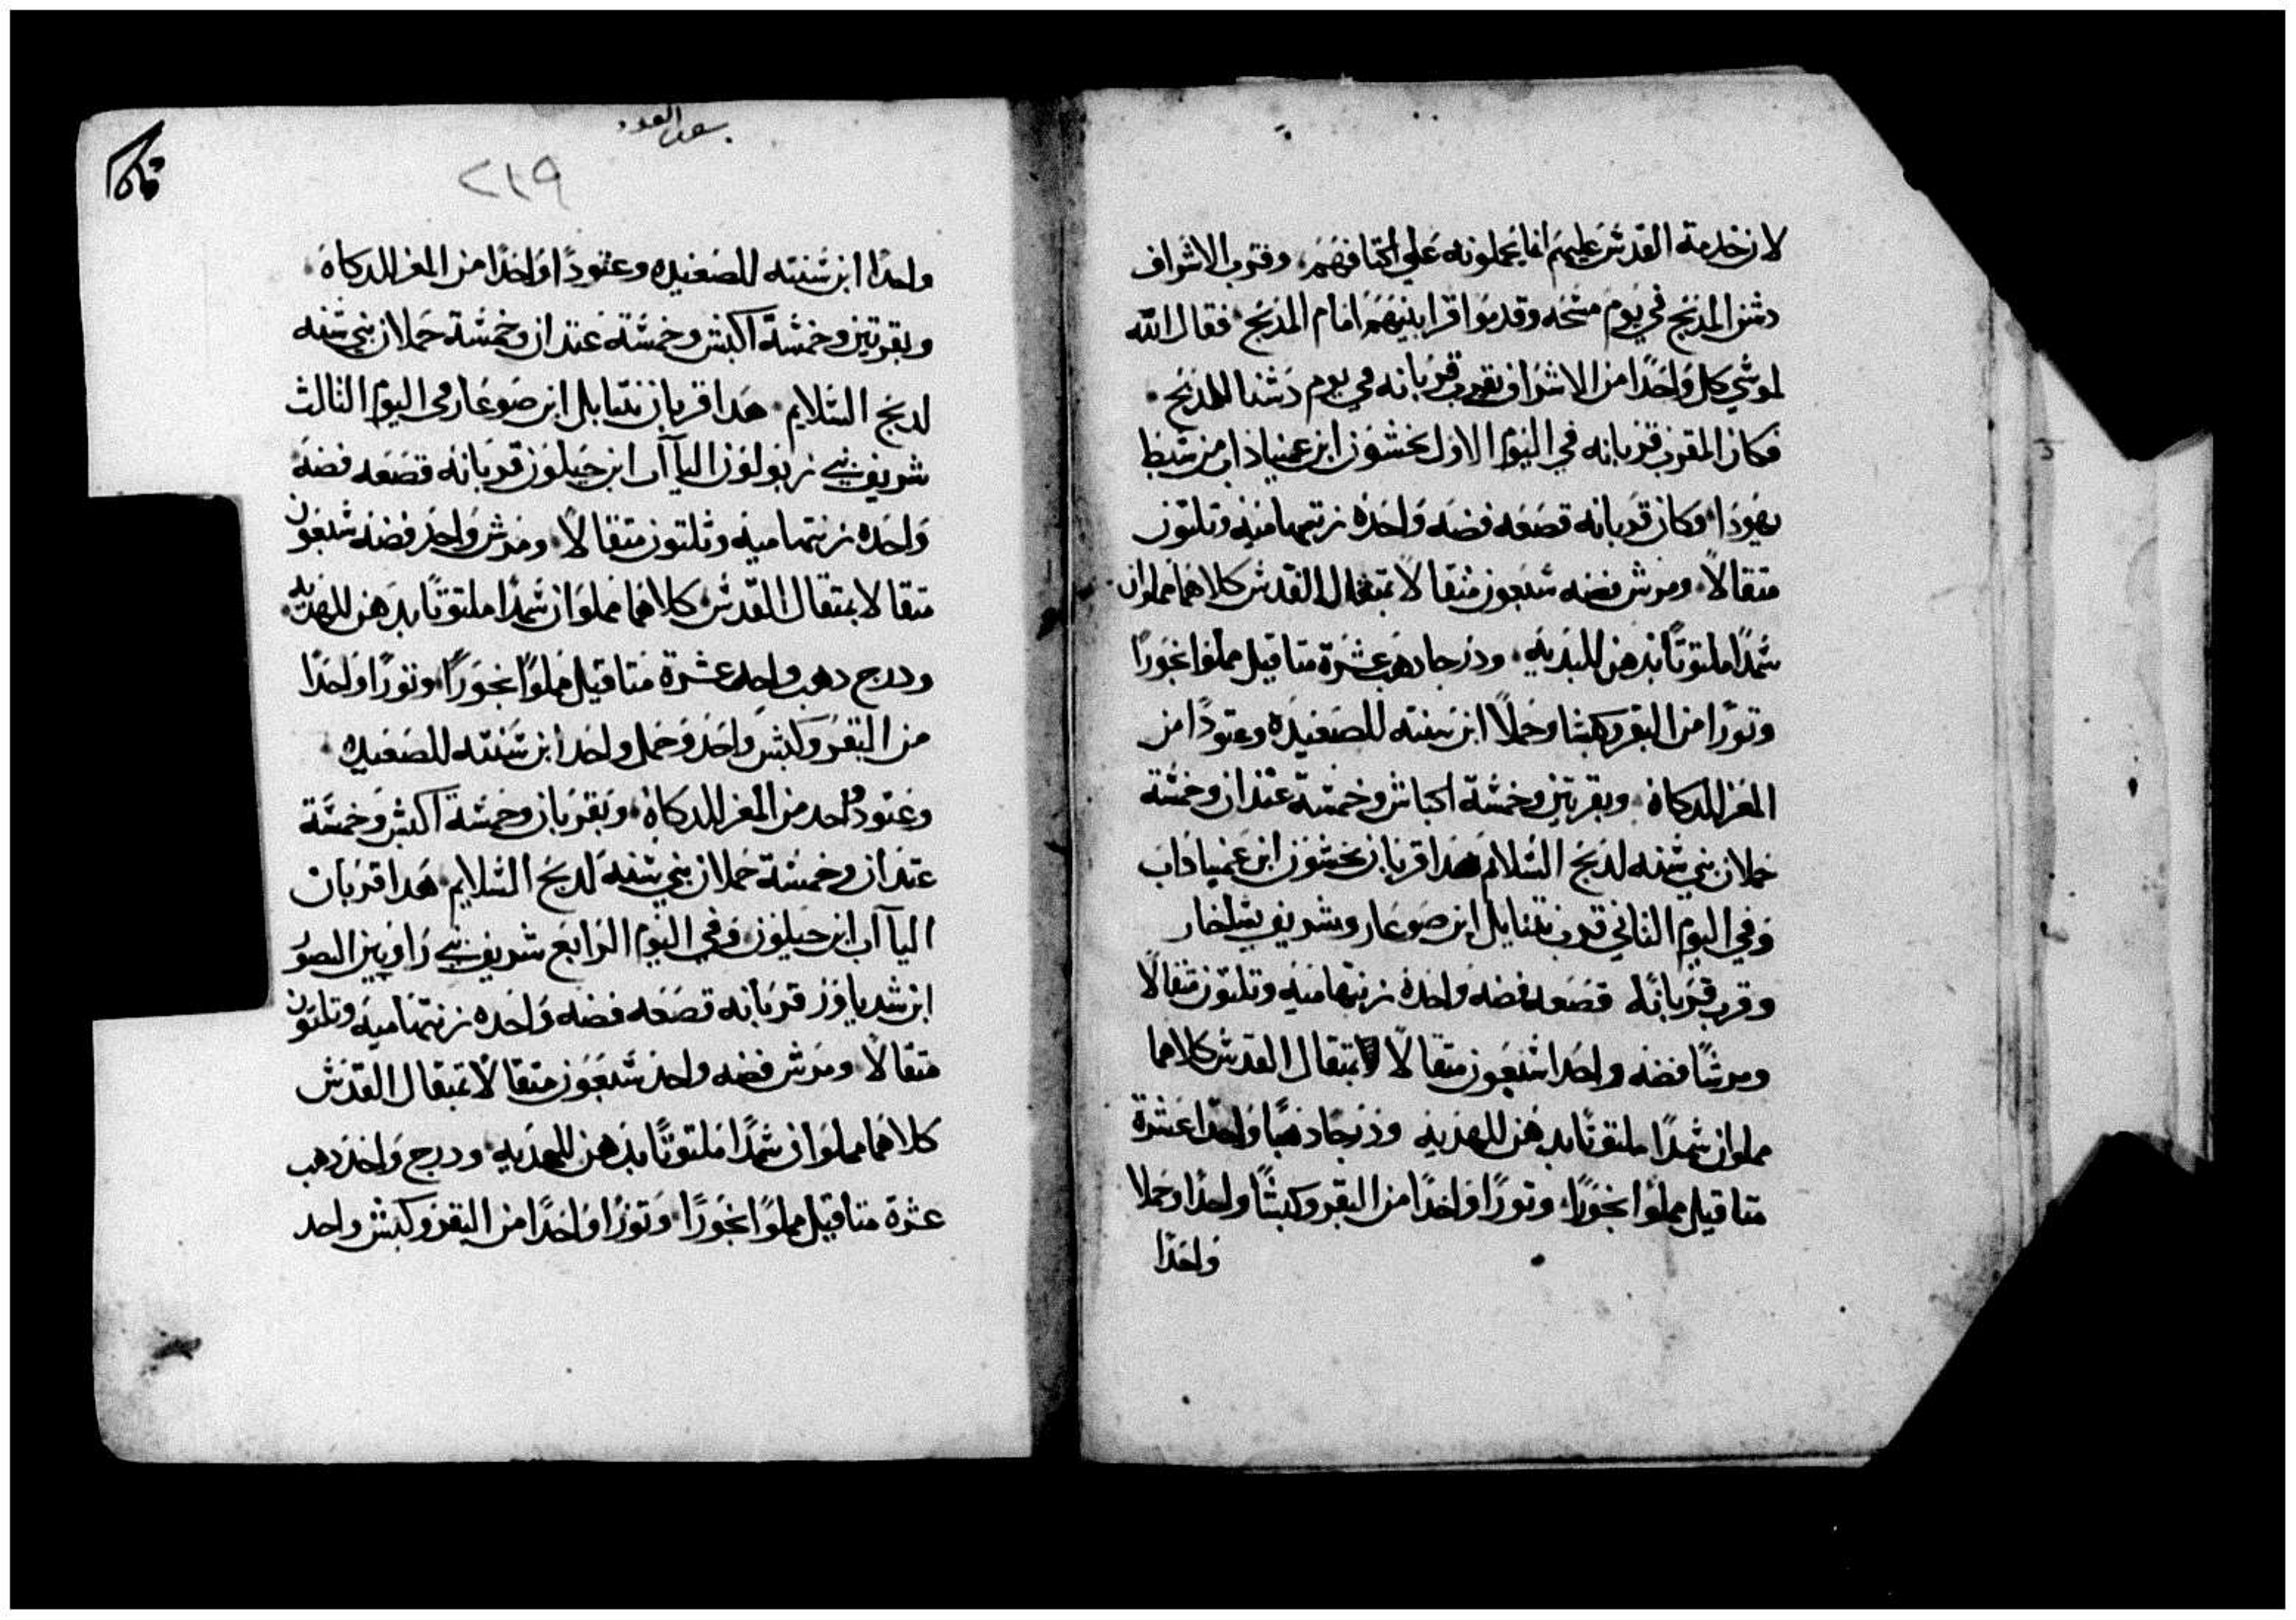 لان خدمة القدس عليهم انما يحملونه علي اكتافهم، وقرب الاشراف
دشن المدبح في يوم مسحه وقدموا قرابينهم امام المدبح، فقال الله
لموسي كل واحدًا من الاشراف يقرب قربانه في يوم دشنا المدبح
فكان المقرب قربانه في اليوم الاول نخشون ابن عميناداب من سبط
يهودا، وكان قربانه قصعه فضه واحده زنتهاميه وتلتون
متقالاً، ومرش فضه سبعون متقالاً بمتقال القدس كلاهما مملوان
سمدًا ملتوتًا بدهن للهديه، ودرجا دهب عشرة متاقيل مملوا بخورًا
وتورًا من البقر وكبشا وحملاً ابن سنته للصعيده وعتودًا من
المعز للدكاة، وبقرتين وخمسة اكباش وخمسة عتدان وخمسة
حملان بني سنه لدبح السلام هدا قربان نخشون ابن عميناداب
وفي اليوم التاني قرب نتنايل ابن صوعار وشريف يساخار
وقرب قربانه قصعه فضه واحده زنتهاميه وتلتون متقالاً
ومرشًا فضه واحدا سبعون متقالاً بمتقال القدس كلاهما
مملوان سمدًا ملتوتًا بدهن للهديه ودرجًا دهبًا واحدًا عشرة
متاقيل مملوا بخورًا، وتورًا واحدًا من البقر وكبشًا واحدًا وحملا
واحدًا
سفر العدد
٢١٩
واحدًا ابن سنته للصعيده وعتودًا واحدًا من المعز للدكاه
وبقرتين وخمسة اكبش وخمسة عتدان وخمسة حملان بني سنه
لدبح السلام، هدا قربان نتنايل ابن صوعار وفي اليوم التالت
شريف بني زبولون الياآب ابن حيلون قربانه قصعه فضه
واحده زنتهاميه وتلتون متقالاً، ومرش واحد فضه سبعون
متقالا بمتقال القدس كلاهما مملوان سمدًا ملتوتًا بدهن للهديه
ودرج دهب واحد عشرة متاقيل مملوًا بخورًا، وتورًا واحدًا
من البقر وكبش واحد وحمل واحد ابن سنته للصعيده
وعتود واحد من المعز للدكاة، وبقرتان وخمسة اكبش وخمسة
عتدان وخمسة حملان بني سنه لدبح السلام، هدا قربان
الياآب ابن حيلون، وفي اليوم الرابع شريف بني راوبين اليصور
ابن شدياور قربانه قصعه فضه واحده زنتهاميه وتلتون
متقالاً، ومرش فضه واحد سبعون متقالاً بمتقال القدس
كلاهما مملوان سمدًا ملتوتًا بدهن للهديه، ودرج واحد دهب
عشرة متاقيل مملوًا بخورًا، وتورًا واحدًا من البقر وكبش واحد